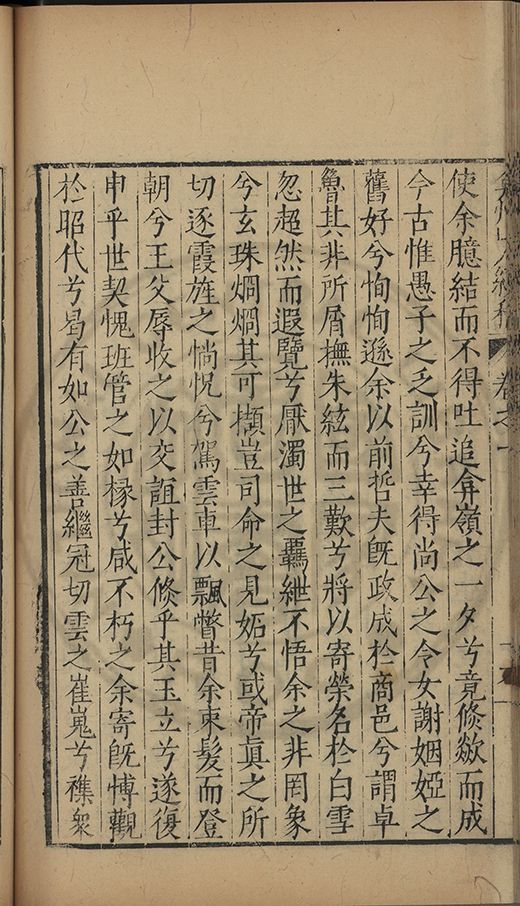 卷之一
使余臆結而不得吐追弇嶺之一夕兮竟倏歘而成
今古惟愚子之乏訓兮幸得尚公之令女謝姻婭之
舊好兮恂恂遜余以前哲夫旣政成於商邑兮謂卓
魯其非所屑撫朱絃而三歎兮將以寄榮名於白雪
忽超然而遐覽兮厭濁世之羈紲不悟余之非罔象
兮玄珠烱烱其可擷豈司命之見妬兮或帝眞之所
切逐霞旌之惝怳兮駕雲車以飄瞥昔余束髮而登
朝兮王父辱收之以交誼封公倏乎其玉立兮遂復
申乎世契愧班管之如椽兮咸不朽之余寄旣愽觀
於昭代兮曷有如公之善繼冠切雲之崔嵬兮襍衆